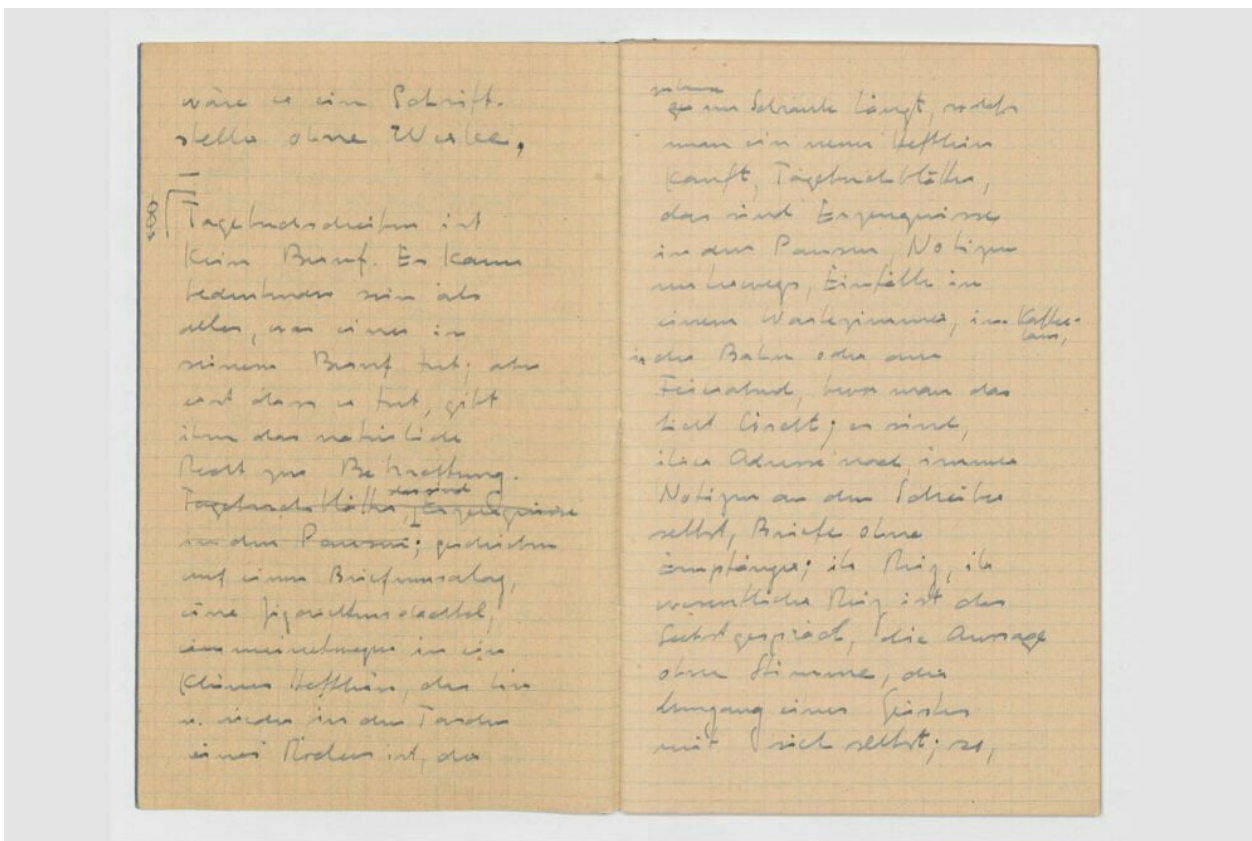 wäre es ein Schrift-
steller ohne Werke,
—
Tagebuchschreiben ist
kein Beruf. Es kann
bedeutender sein als
alles, was einer in
seinem Beruf tut; aber
erst dass er tut, gibt
ihm das natürliche
Recht zur Betrachtung.
Tagebuchblätter, das sind Erzeugnisse
in den Pausen; geschrieben
auf einen Briefumschlag,
eine Zigarettenschachtel,
in ein
kleines Heftlein, das hin
u. wieder in den Taschen
eines Rockes ist, der
im Schranke hängt, sodass
man ein neues Heftlein
kauft, Tagebuchblätter,
das sind Erzeugnisse
in den Pausen, Notizen
unterwegs, Einfälle in
einem Wartezimmer, im Kaffee-
haus,
in der Bahn oder am
Feierabend, bevor man das
Licht löscht; es sind,
ihrer Adresse nach, immer
Notizen an den Schreiber
selbst, Briefe ohne
Empfänger; ihr Reiz, ihr
wesentlicher Reiz ist das
Selbstgespräch, die Aussage
ohne Stimme, der
Umgang eines Geistes
mit sich selbst; so,